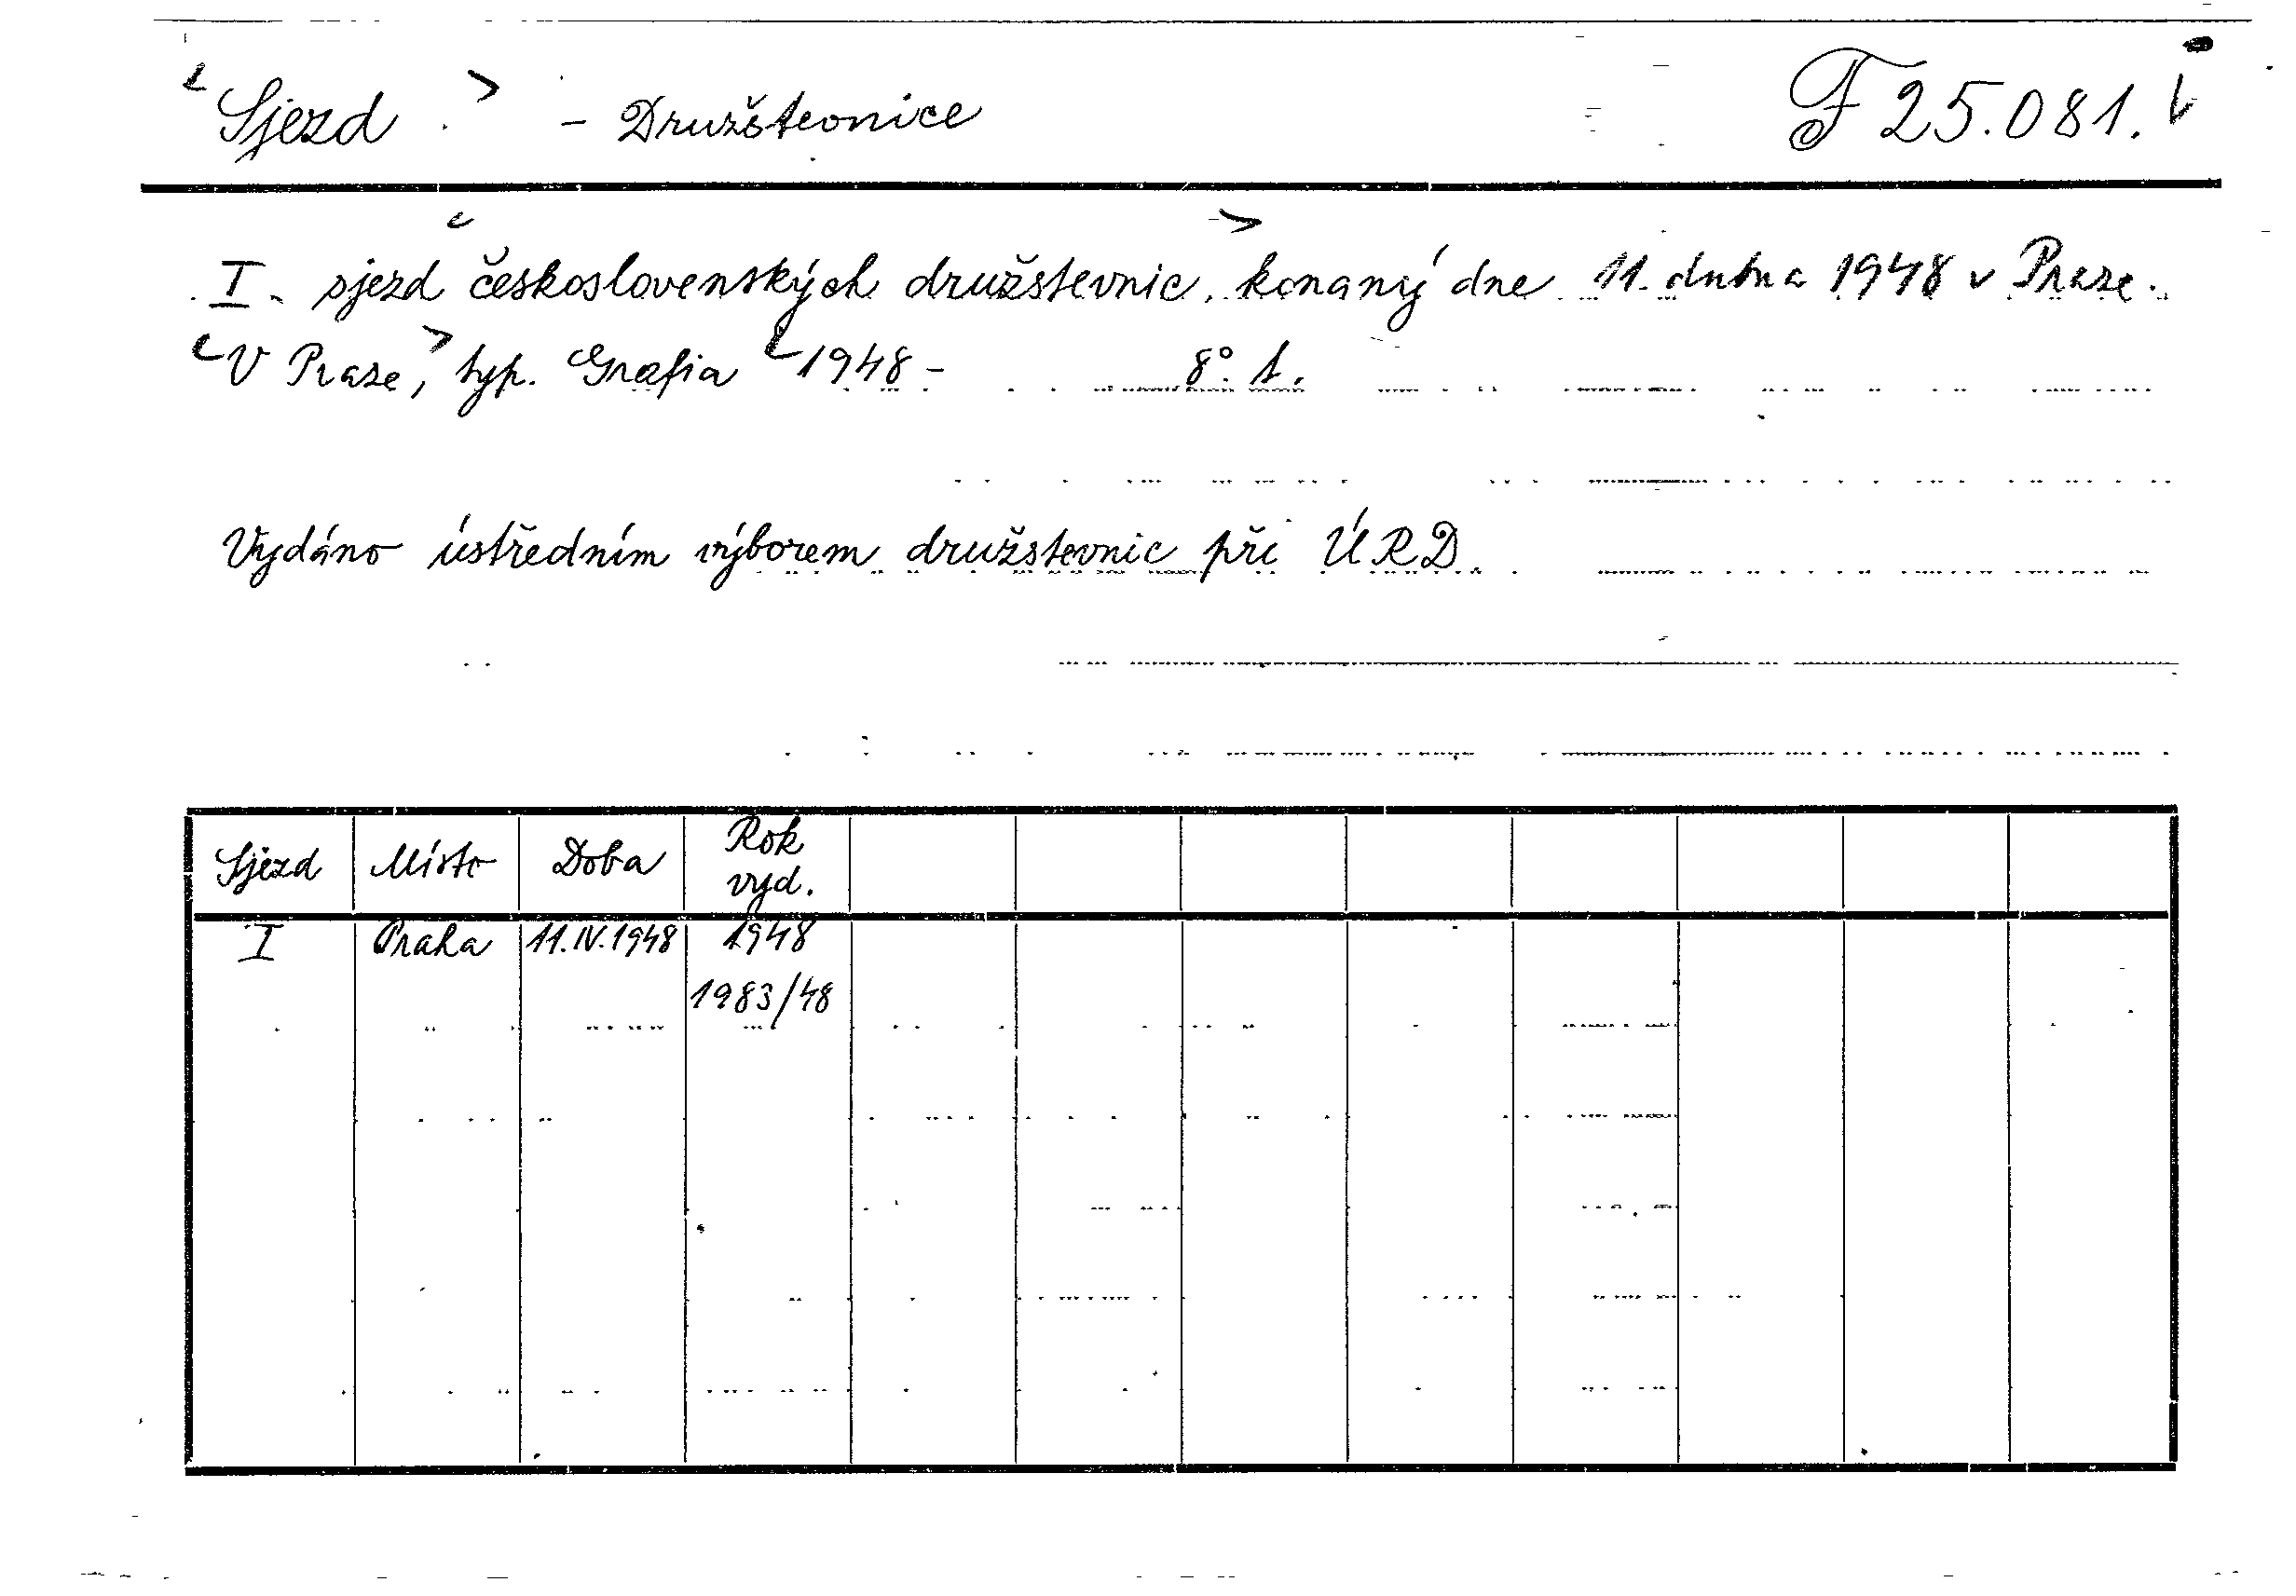 Sjezd - Družstevnice F 25.081.
I. sjezd československých družstevnic, konaný dne 11. dubna 1948 v Praze.
V Praze, typ. Grafia 1948 - 8° 1.
Vydáno ústředním výborem družstevnic při ÚRD
Sjezd Místo Doba Rok vyd.
I Praha 11.IV.1948 1948
1983/48